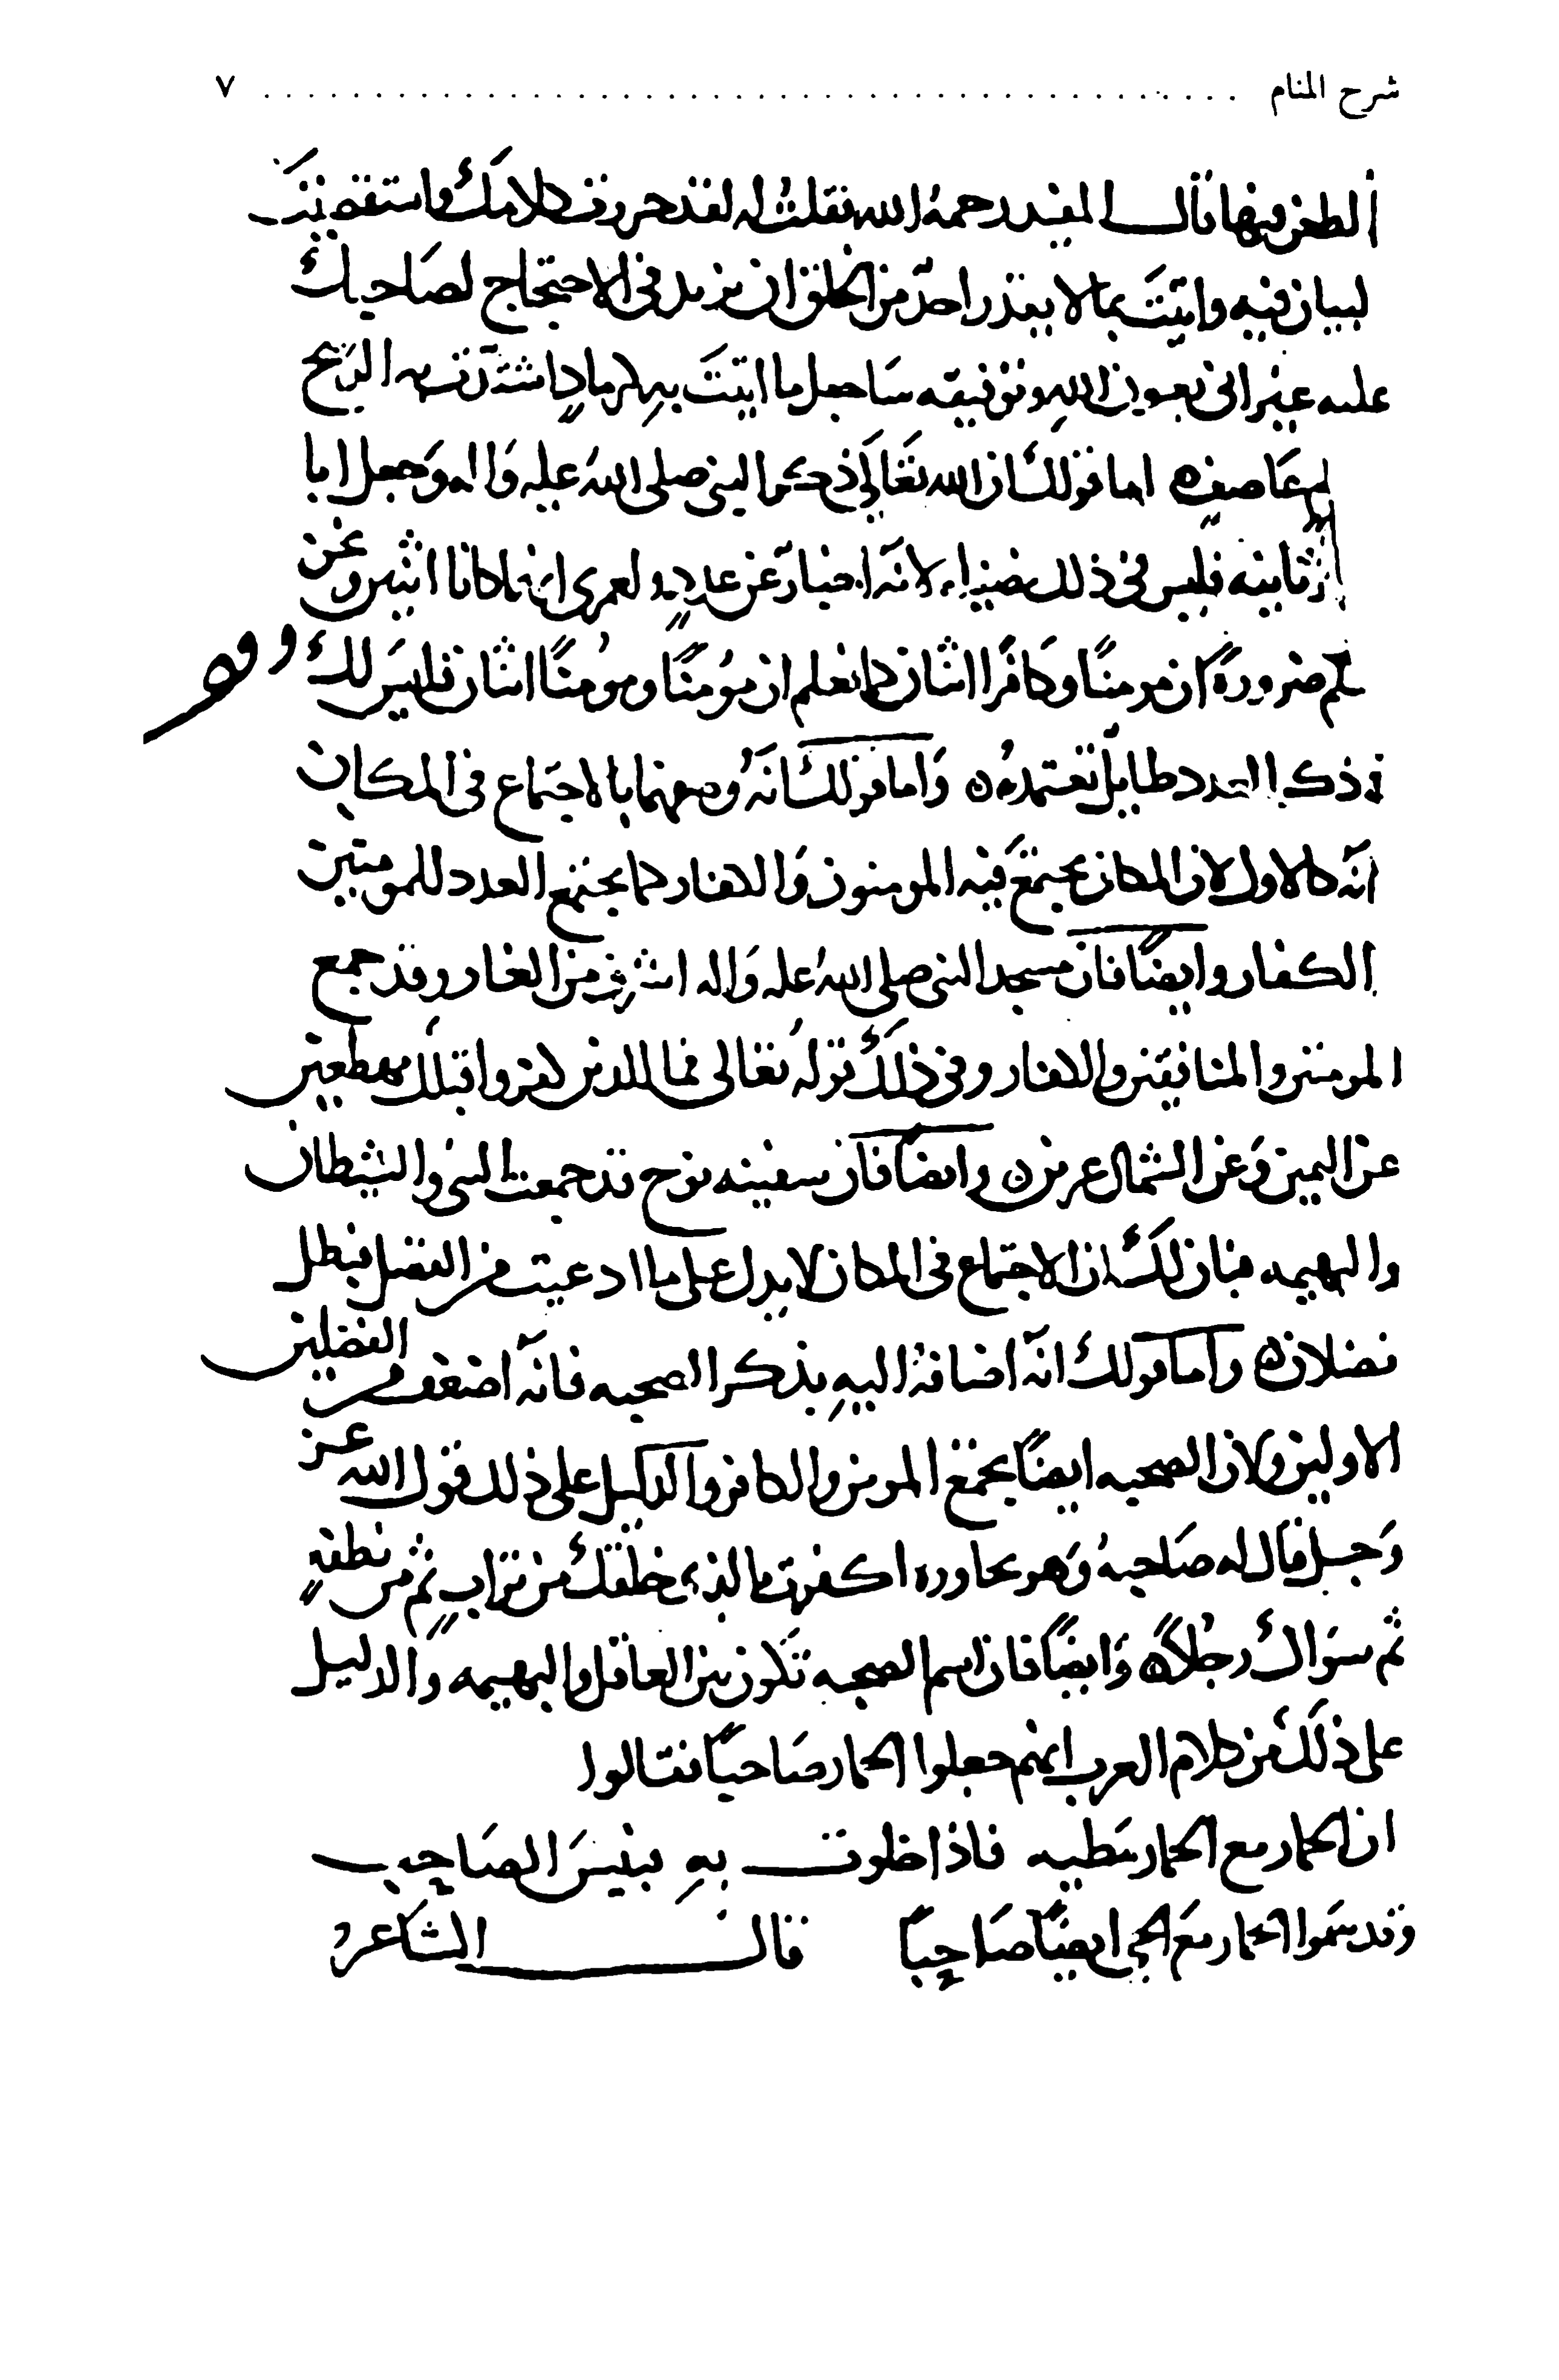 شرح المنام ........................................ ٧
الطعن فيها قال المفيد رحمه الله فقلت له لقد حررت كلامك واستقصيت
لبيان فيه واتيت بما لا يقدر احد من الخلق ان يزيد في الاحتجاج لصاحبك
عليه غير اني بعون الله وتوفيقه ساجعل ما اتيت به كرماد اشتدت به الريح
يوم عاصف ه اما قولك ان الله تعالى ذكر النبي صلى الله عليه واله وجعل ابا
ثانيه فليس في ذلك فضيلة لانه اخبار عن عدد ولعمري انهما كانا اثنين ونحن
نعلم ضرورة ان مومنًا وكافرًا اثنان كما نعلم ان مؤمنًا ومؤمنًا اثنان فليس لك
في ذكر العدد طايل تعتمده ه واما قولك انه وصفهما بالاجتماع في المكان
انه كالاول لان المكان يجتمع فيه المومنون والكفار كما يجتمع العدد للمومنين
الكفار وايضًا فان مسجد النبي صلى الله عليه واله اشرف من الغار وقد جمع
المومنين والمنافقين والكفار وفي ذلك قوله تعالى فمال الذين كفروا قبلك مهطعين
عن اليمين وعن الشمال عزين ه وايضًا فان سفينه نوح قد جمعت النبي والشيطان
والبهيمه فبان لك ان الاجتماع في المكان لا يدل على ما ادعيت من الفضل فبطل
فضلان ه واما قولك انه اضافه اليه بذكر الصحبه فانه اضعف من الفضلين
الاولين ولان الصحبه ايضًا يجمع المومن والكافر والدليل على ذلك قول الله عز
وجل قال له صاحبه وهو يحاوره اكفرت بالذي خلقك من تراب ثم من نطفةٍ
ثم سواك رجلًا ه وايضًا فان اسم الصحبه تكون بين العاقل والبهيمه والدليل
على ذلك من كلام العرب انهم جعلوا الحمار صاحبًا فقالوا
ان الحمار مع الحمار مطيه فاذا خلوت به فبئس الصاحب
وقد سموا الحمار مع الحي ايضًا صاحبًا قال الشاعر